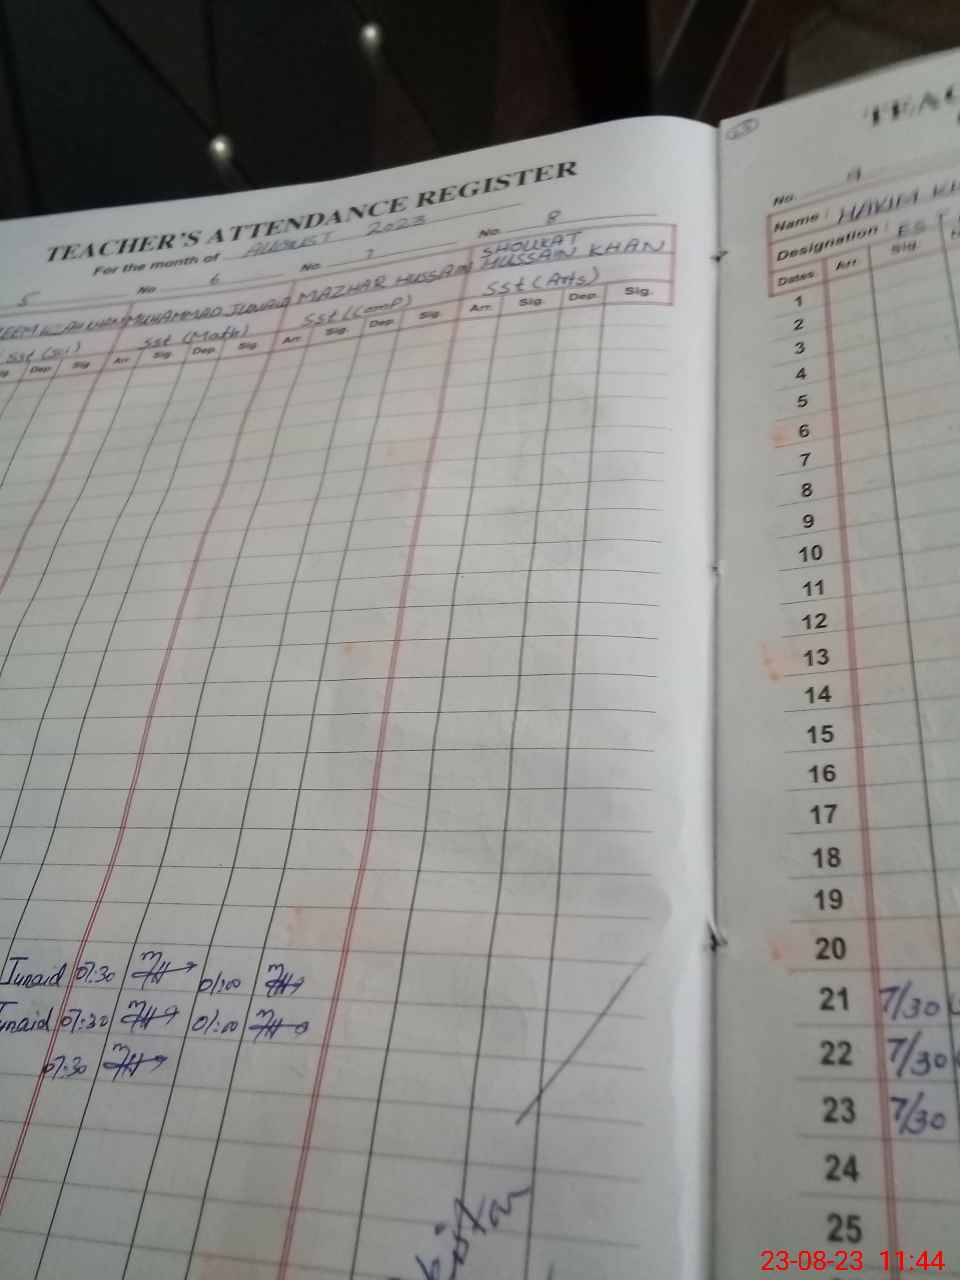 TEACHER'S ATTENDANCE REGISTER
For the month of AUGUST 2023
5 No 6 No 7 No. 8
MUHAMMAD JUNAID MAZHAR HUSSAIN SHOUKAT HUSSAIN KHAN
SSt (Sci) SSt (Math) SSt (Comp) SSt (Arts)
Dep Sig Arr Sig Dep Sig Arr Sig. Dep. Sig. Arr. Sig. Dep. Sig.
Junaid 07:30 01:00
07:30 01:00
07:30
TEAC
No. 9
Name: HAKIM
Designation: EST
Dates Arr. Sig.
1
2
3
4
5
6
7
8
9
10
11
12
13
14
15
16
17
18
19
20
21 7/30
22 7/30
23 7/30
24
25
23-08-23 11:44